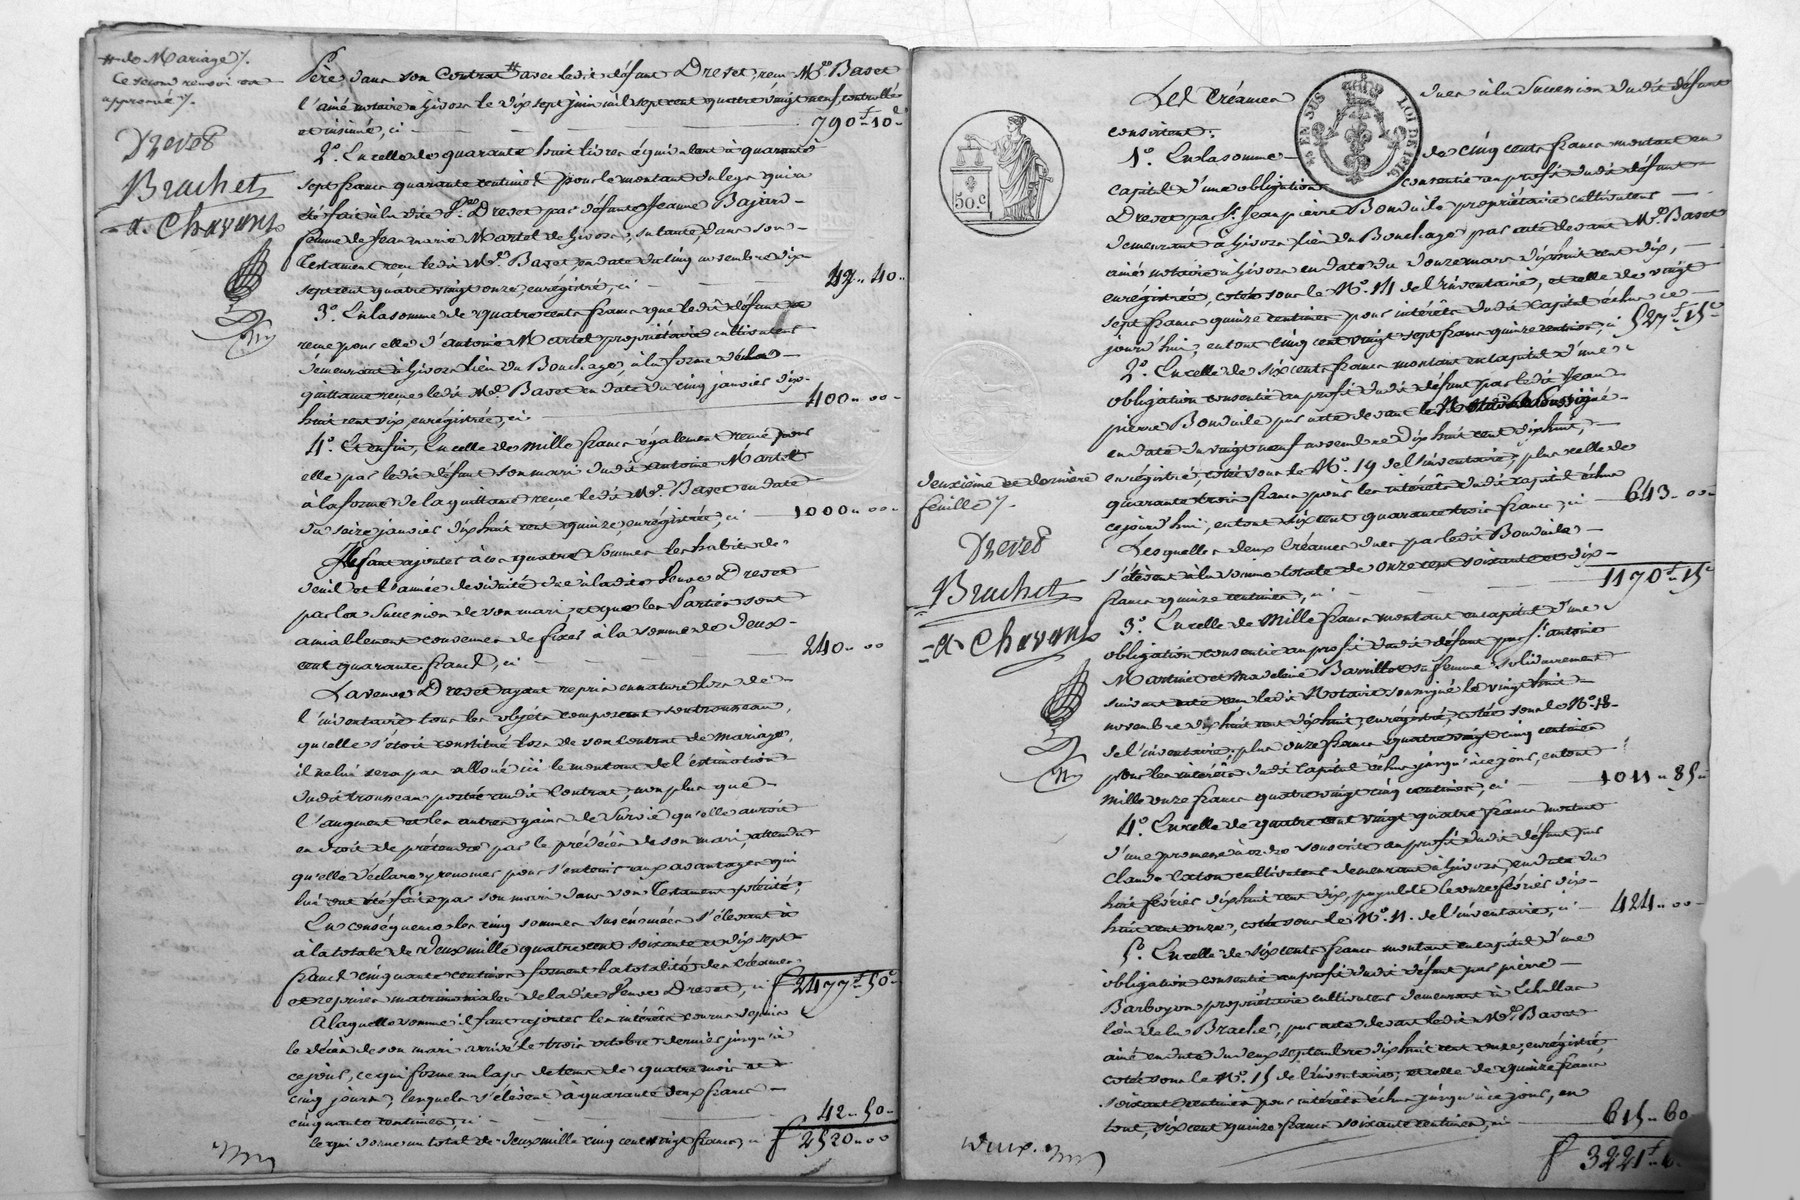 # de Mariage /.
Ce second renvoi est
approuvé /.
Drevet
Brachet
A. Chavans
Père dans son Contrat # avec ledit défunt Drevet, reçu Me. Bavet
l'ainé notaire à Givors le dix sept juin mil sept cent quatre vingt neuf, controllé
et insinué, ci — 790 f 10 c
2°. En celle de quarante huit livres équivalent à quarante
sept francs quarante centimes pour le montant du legs qui a
été fait à la dite Ve. Drevet par défunte Jeanne Bajard
femme de Jean marie Martel de Givors, sa tante, dans son
Testament reçu ledit Me. Bavet, en date du cinq novembre dix
sept cent quatre vingt onze, enrégistré, ci — 47 .. 40 ..
3°. En la somme de quatre cents francs que ledit défunt a
reçue pour elle d'antoine Martel propriétaire cultivateur
demeurant à Givors lieu du Bouchage, à la forme de la
quittance reçue ledit Me. Bavet en date du cinq janvier dix
huit cent dix, enrégistrée, ci — 400 .. 00 ..
4°. Et enfin, En celle de mille francs également reçue pour
elle par ledit défunt son mari dudit antoine Martel
à la forme de la quittance reçue ledit Me. Bavet en date
du seize janvier dix huit cent quinze, enrégistrée, ci — 1000 .. 00 ..
Il faut ajouter à ces quatre sommes les habits de
deuil et l'année de viduité due à la dite Veuve Drevet
par la Succession de son mari, et que les Parties sont
amiablement convenues de fixer à la somme de deux
cent quarante francs, ci — 240 .. 00
La veuve Drevet ayant repris en nature lors de
l'inventaire tous les objets composant son trousseau,
qu'elle s'étoit constitué lors de son Contrat de mariage,
il ne lui sera pas alloué ici le montant de l'estimation
dudit trousseau portée audit Contrat, non plus que
l'augment et les autres gains de Survie qu'elle auroit
en droit de prétendre par le prédécès de son mari, attendu
qu'elle déclare y renoncer pour s'en tenir aux avantages qui
lui ont été faits par son mari dans son Testament précité;
En conséquence les cinq sommes susénoncées s'élevant à
à la totale de deux mille quatre cent soixante et dix sept
francs cinquante centimes forment la totalité des créances
et reprises matrimoniales de la dite Veuve Drevet, ci f 2477 f 50 c
A laquelle somme il faut ajouter les intérêts courus depuis
le décès de son mari arrivé le trois octobre dernier jusqu'à
ce jour, ce qui forme un laps de tems de quatre mois et
cinq jours, lesquels s'élèvent à quarante deux francs
cinquante centimes, ci — 42 .. 50 ..
Ce qui donne un total de deux mille cinq cent vingt francs, ci f 2520 .. 00
50. c
EN SUS
LOI DE 1816
deuxième et dernière
feuille /.
Drevet
Brachet
A. Chavans
deux.
Les Créances dues à la Succession dudit défunt
consistent:
1°. En la somme de cinq cents francs montant en
capital d'une obligation consentie au profit dudit défunt
Drevet par Sr. Jean pierre Bonduile propriétaire cultivateur
demeurant à Givors lieu du Bouchage par acte devant Me. Bavet
ainé notaire à Givors en date du douze mars dix huit cent dix,
enrégistrée, cotée sous le N°. 14 de l'inventaire, et celle de vingt
sept francs quinze centimes pour intérêts dudit capital échus ce
jourd'hui, en tout cinq cent vingt sept francs quinze centimes, ci 527 f 15 c
2°. En celle de six cents francs montant en capital d'une
obligation consentie au profit dudit défunt par ledit Jean
pierre Bonduile par acte devant le Notaire soussigné
en date du vingt neuf novembre dix huit cent dix huit,
enrégistré, coté sous le N°. 19 de l'inventaire; plus celle de
quarante trois francs pour les intérêts dudit capital échus
cejourd'hui, en tout six cent quarante trois francs, ci — 643 .. 00 ..
Lesquelles deux Créances dues par ledit Bonduile
s'élèvent à la somme totale de onze cent soixante et dix
francs quinze centimes, ci — 1170 f 15 c
3°. En celle de Mille francs montant en capital d'une
obligation consentie au profit dudit défunt par Sr. antoine
Martin et madeleine Barrillot sa femme solidairement
suivant acte reçu ledit Notaire soussigné le vingt huit
novembre dix huit cent dix huit, enrégistré, cotée sous le N°. 18
de l'inventaire, plus onze francs quatre vingt cinq centimes
pour les intérêts dudit Capital échus jusqu'à ce jour, en tout
mille onze francs quatre vingt cinq centimes, ci — 1011 .. 85 ..
4°. En celle de quatre cent vingt quatre francs montant
d'une promesse à ordre souscrite au profit dudit défunt par
Claude Caton cultivateur demeurant à Givors, en date du
huit février dix huit cent dix, payable le onze février dix
huit cent onze, cotée sous le N°. 11. de l'inventaire, ci — 424 .. 00 ..
5°. En celle de six cents francs montant en capital d'une
obligation consentie au profit dudit défunt par pierre
Barboyon propriétaire cultivateur demeurant à Echallas
lieu de la Brache, par acte devant ledit Me. Bavet
ainé en date du deux septembre dix huit cent onze, enrégistré,
cotée sous le N°. 15 de l'inventaire; et celle de quinze francs
soixante centimes pour intérêts échus jusqu'à ce jour, en
tout, six cent quinze francs soixante centimes, ci — 615 .. 60
f 3221 f